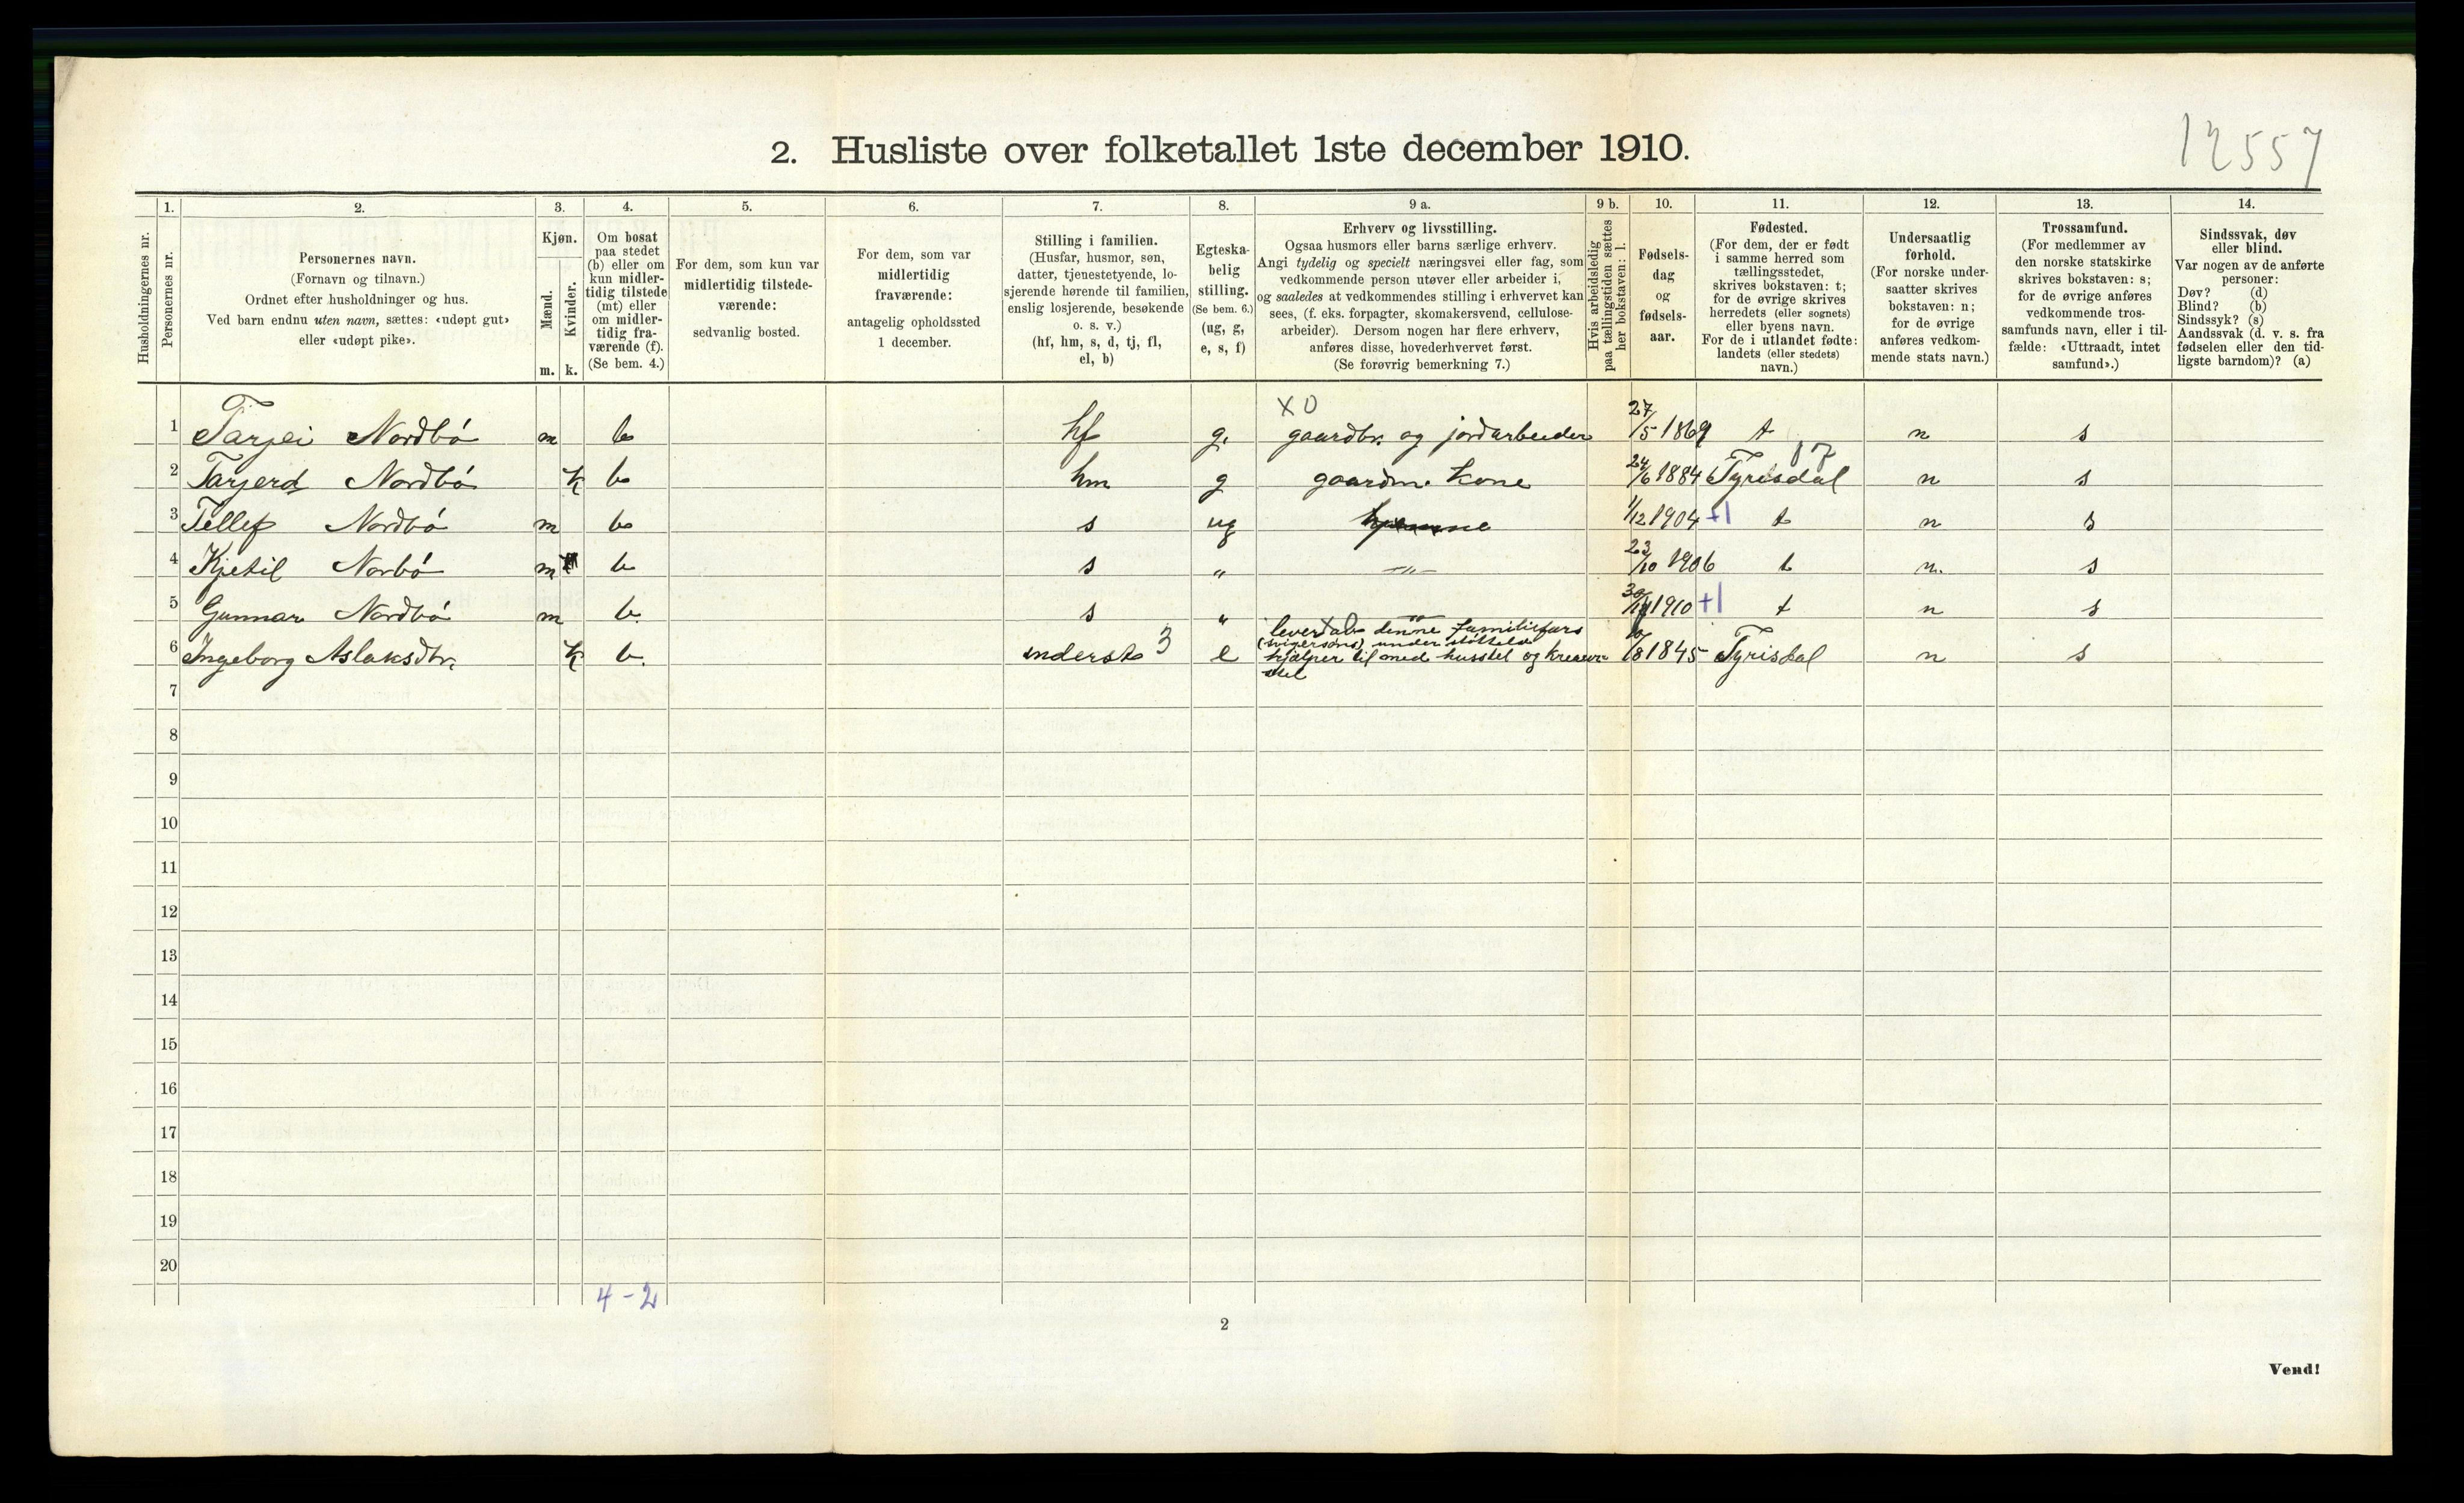 12557
2. Husliste over folketallet 1ste december 1910.
Husholdningernes nr.
1.
Personernes nr.
2.
Personernes navn.
(Fornavn og tilnavn.)
Ordnet efter husholdninger og hus.
Ved barn endnu uten navn, sættes: «udøpt gut»
eller «udøpt pike».
3.
Kjøn.
Mænd.
Kvinder.
m. k.
4.
Om bosat
paa stedet
(b) eller om
kun midler-
tidig tilstede
(mt) eller
om midler-
tidig fra-
værende (f).
(Se bem. 4.)
5.
For dem, som kun var
midlertidig tilstede-
værende:
sedvanlig bosted.
6.
For dem, som var
midlertidig
fraværende:
antagelig opholdssted
1 december.
7.
Stilling i familien.
(Husfar, husmor, søn,
datter, tjenestetyende, lo-
sjerende hørende til familien,
enslig losjerende, besøkende
o. s. v.)
(hf, hm, s, d, tj, fl,
el, b)
8.
Egteska-
belig
stilling.
(Se bem. 6.)
(ug, g,
e, s, f)
9 a.
Erhverv og livsstilling.
Ogsaa husmors eller barns særlige erhverv.
Angi tydelig og specielt næringsvei eller fag, som
vedkommende person utøver eller arbeider i,
og saaledes at vedkommendes stilling i erhvervet kan
sees, (f. eks. forpagter, skomakersvend, cellulose-
arbeider). Dersom nogen har flere erhverv,
anføres disse, hovederhvervet først.
(Se forøvrig bemerkning 7.)
9 b.
Hvis arbeidsledig
paa tællingstiden sættes
her bokstaven: l.
10.
Fødsels-
dag
og
fødsels-
aar.
11.
Fødested.
(For dem, der er født
i samme herred som
tællingsstedet,
skrives bokstaven: t;
for de øvrige skrives
herredets (eller sognets)
eller byens navn.
For de i utlandet fødte:
landets (eller stedets)
navn.)
12.
Undersaatlig
forhold.
(For norske under-
saatter skrives
bokstaven: n;
for de øvrige
anføres vedkom-
mende stats navn.)
13.
Trossamfund.
(For medlemmer av
den norske statskirke
skrives bokstaven: s;
for de øvrige anføres
vedkommende tros-
samfunds navn, eller i til-
fælde: «Uttraadt, intet
samfund».)
14.
Sindssvak, døv
eller blind.
Var nogen av de anførte
personer:
Døv? (d)
Blind? (b)
Sindssyk? (s)
Aandssvak (d. v. s. fra
fødselen eller den tid-
ligste barndom)? (a)
X 0
1 Tarjei Nordbó m b hf g. gaardbr. og jordarbeider 27/5 1869 t n s
17
2 Tarjerd Nordbó k b hm g gaardm. kone 24/6 1884 Tyrisdal n s
3 Tellef Nordbó m b s ug hjemme 1/12 1904 +1 t n s
4 Kjetil Norbó m b s „ —„— 23/10 1906 t n. s
5 Gunnar Nordbó m b. s „ —„— 30/11 1910 +1 t n s
6 Ingeborg Aslaksdtr. k b. inderst 3 e lever av denne familiefars
(svigersøns) understøttelse
hjælper til med husstel og kreatur
stel 10/8 1845 Tyrisdal n s
7
8
9
10
11
12
13
14
15
16
17
18
19
20
4 - 2
2
Vend!